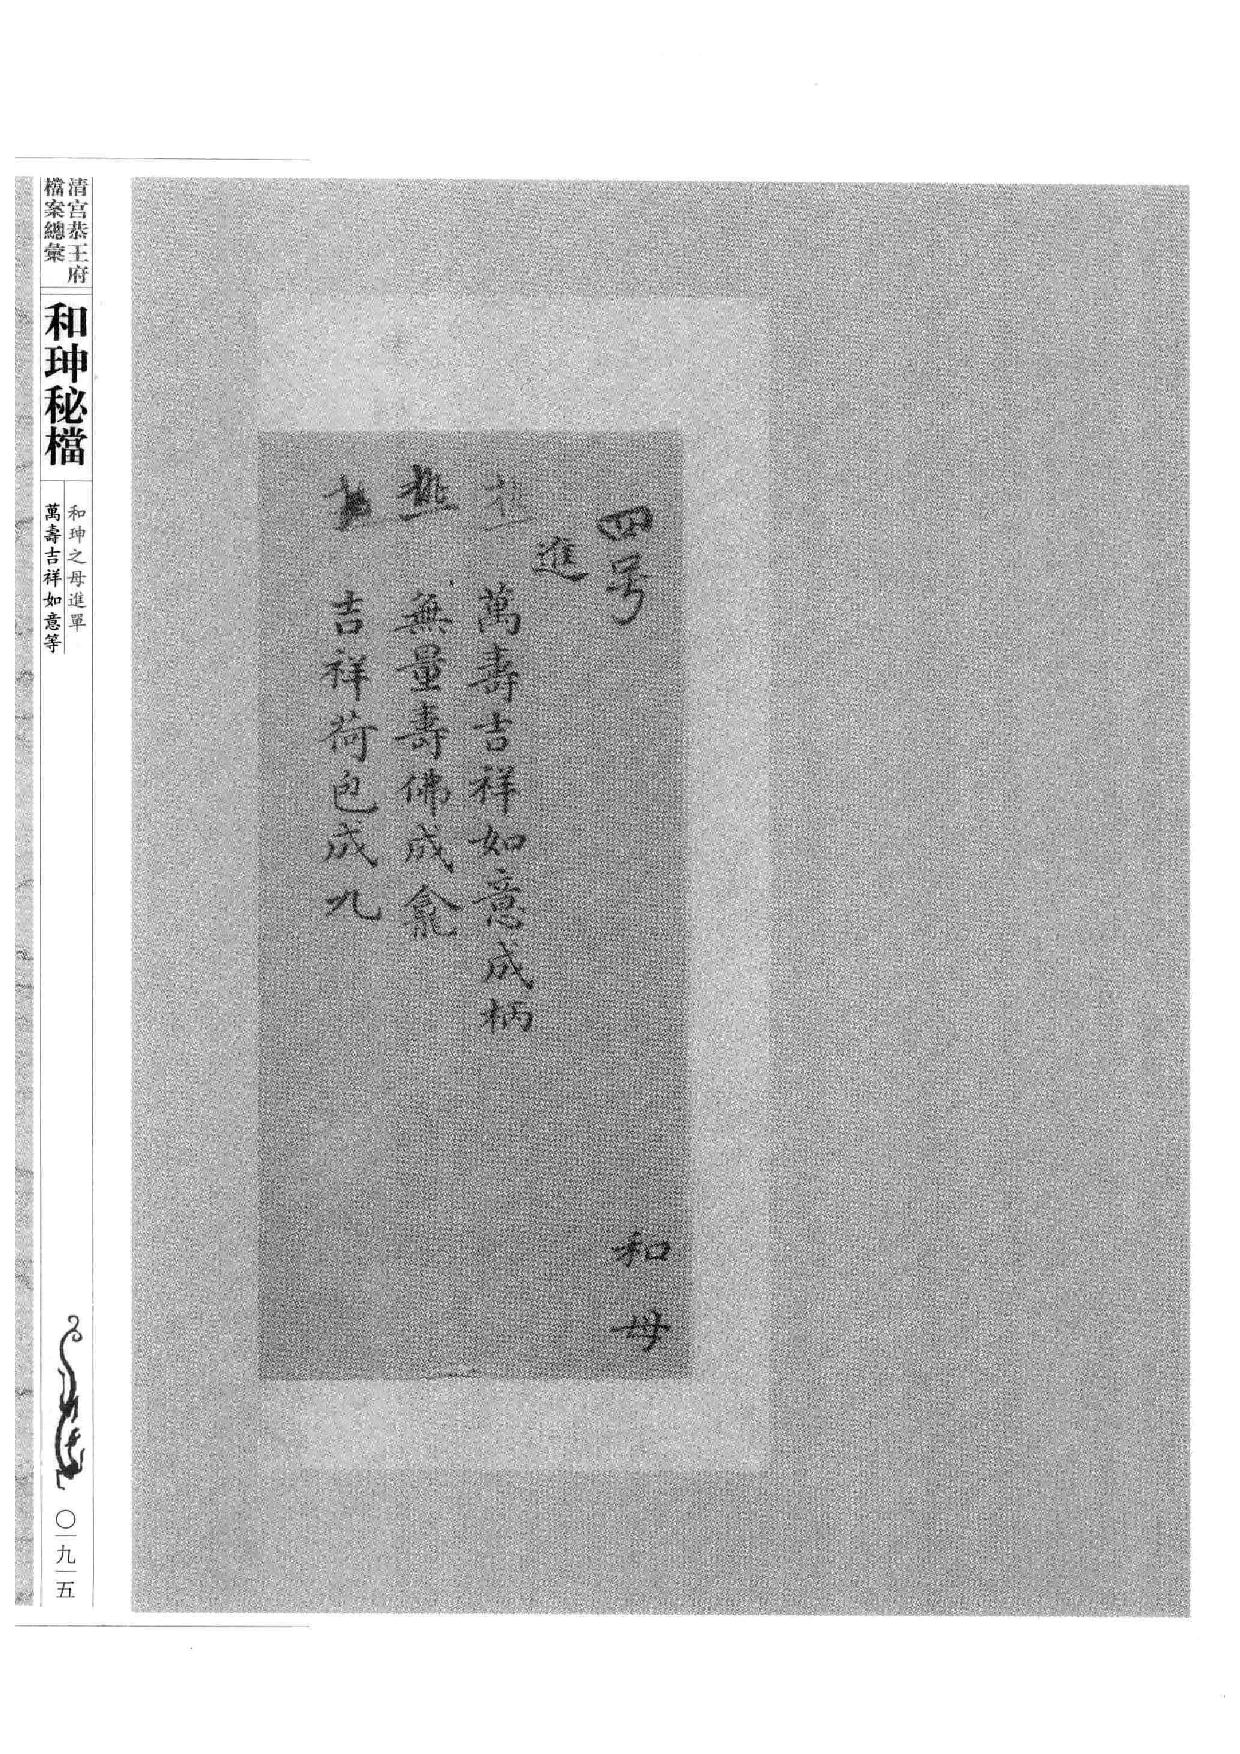 四号
和母
進
萬壽吉祥如意成柄
無量壽佛成龕
吉祥荷包成九
清宮恭王府
檔案總彙
和珅秘檔
和珅之母進單
萬壽吉祥如意等
〇一九五